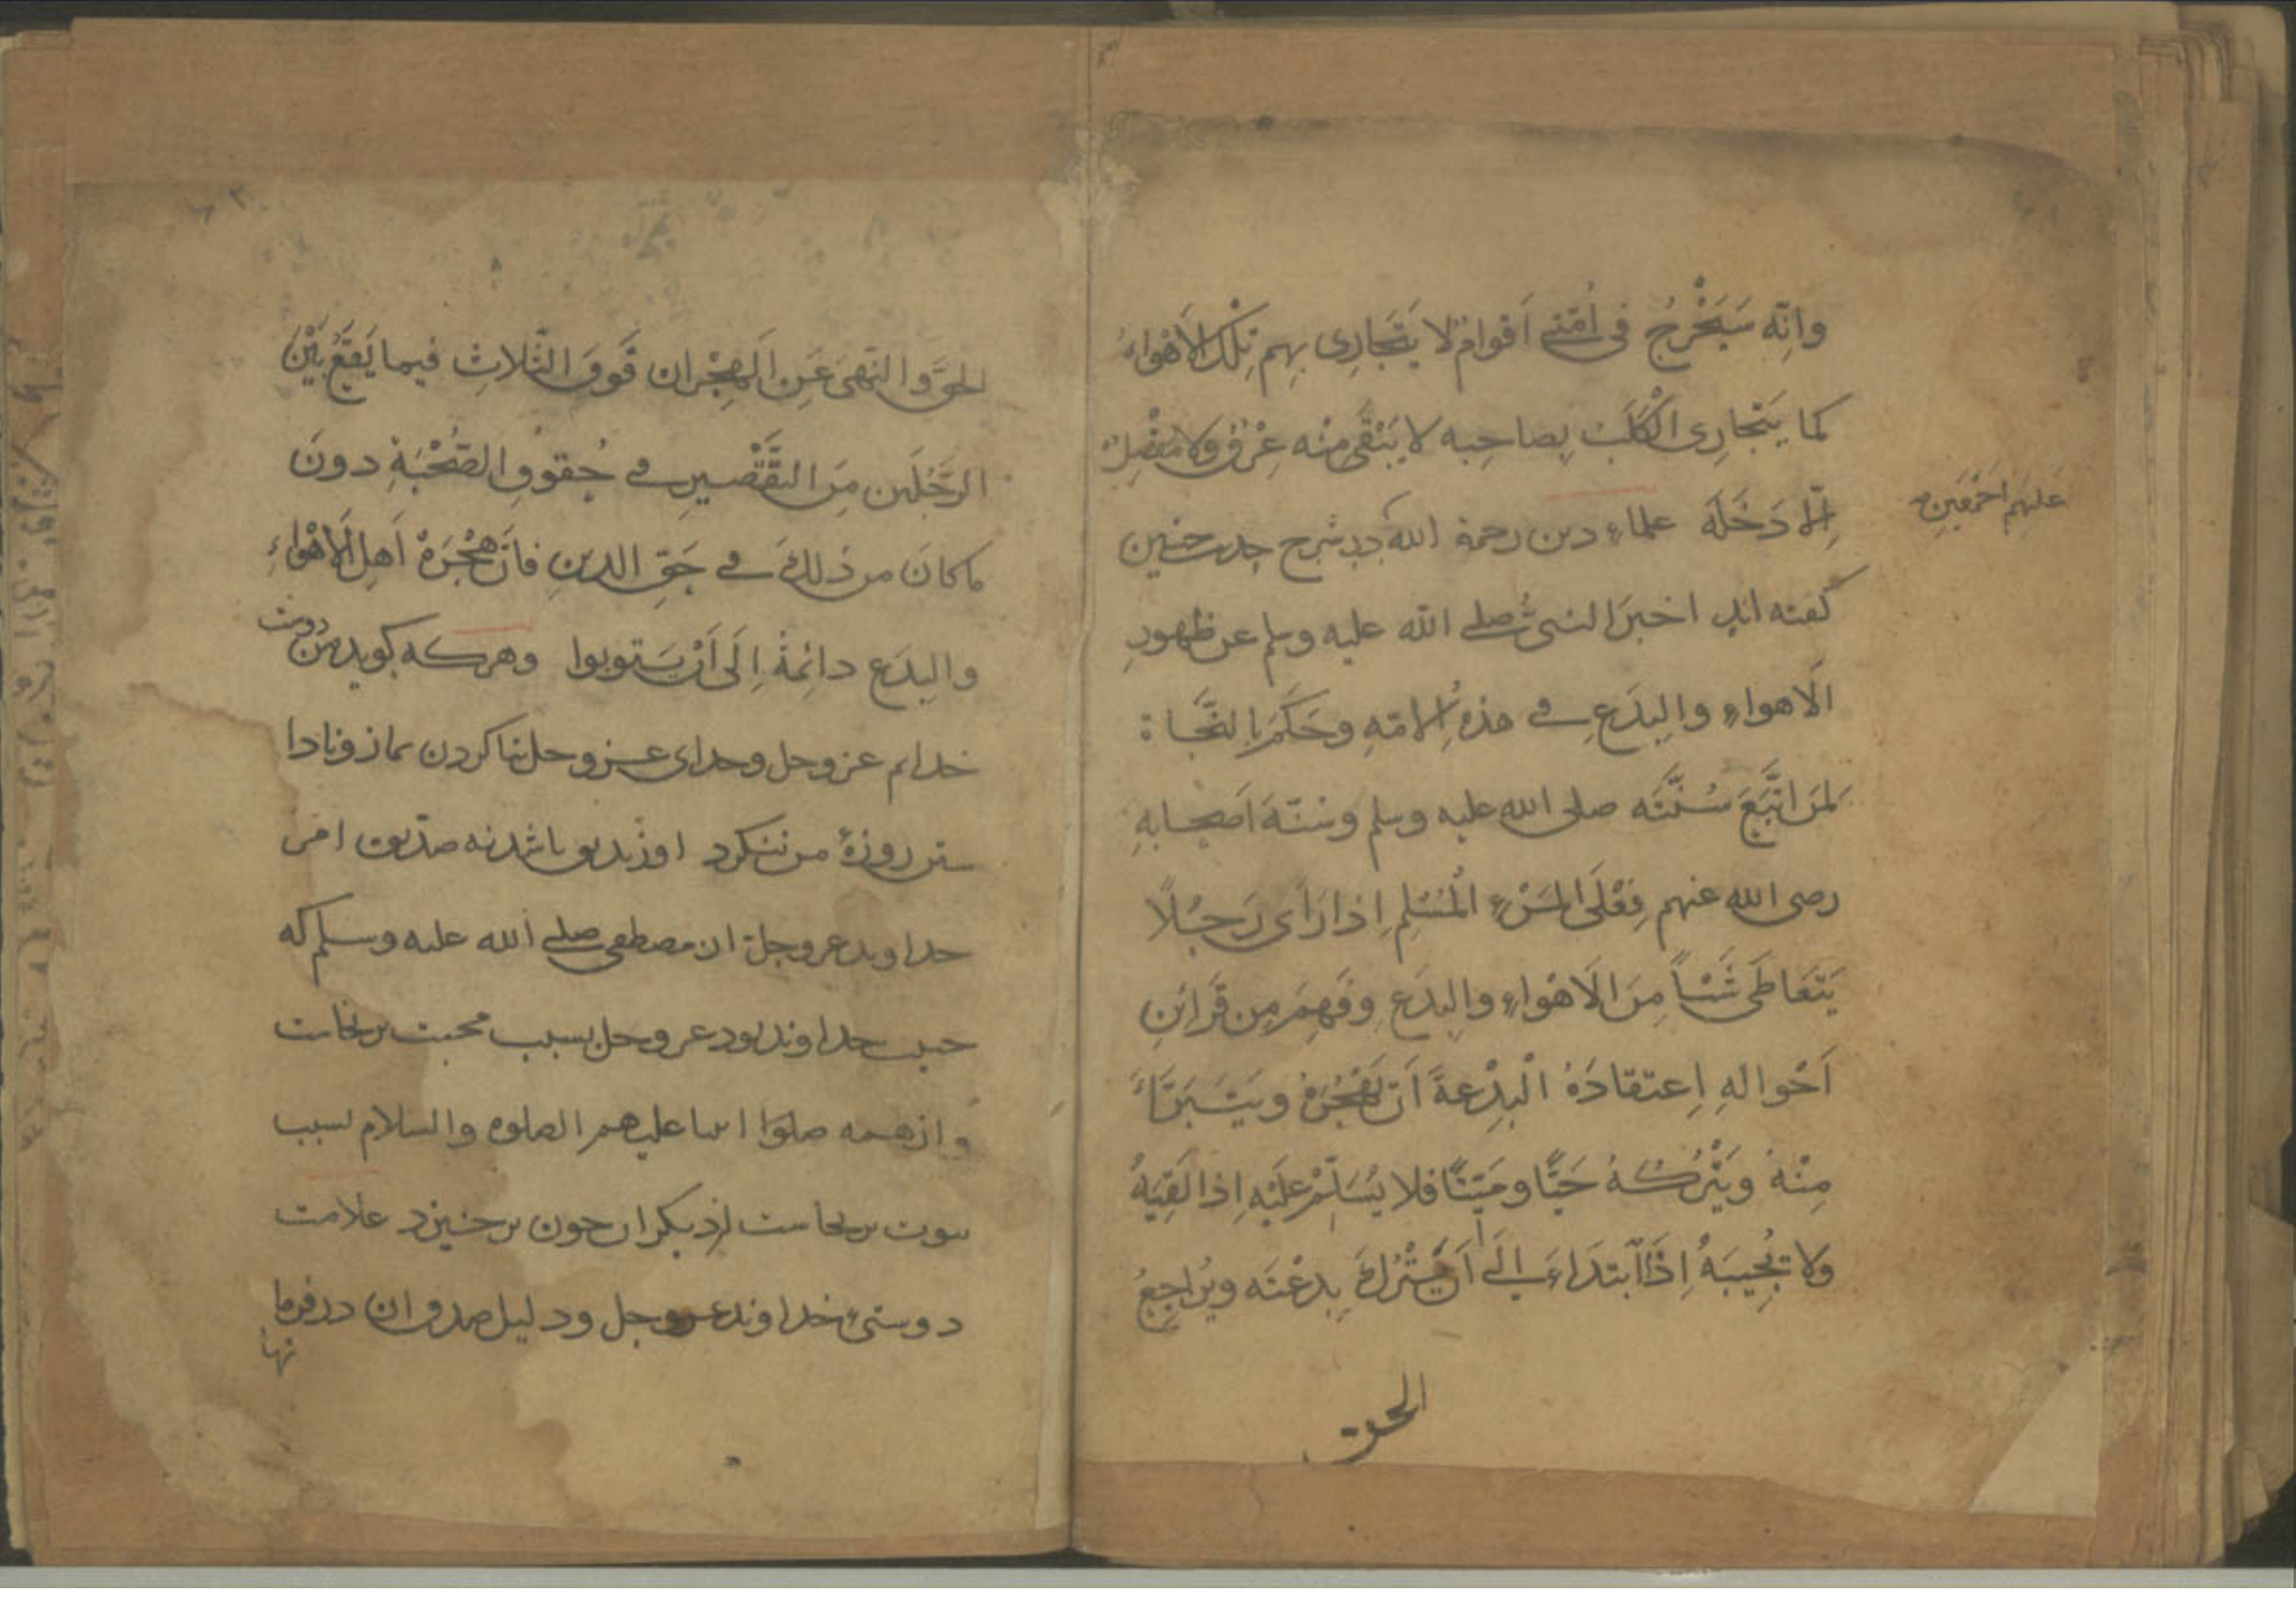 وانّه سَيَخْرُجُ فى اُمّتى اَقوامٌ لا يَتَجَارِى بِهِم تِلْكَ الاَهْوَاءُ
كما يَتَجارِى الْكَلَبُ بِصاحِبِه لا يَبْقَى مِنْه عِرْقٌ وَلا مَفْصِلٌ
اِلّا دَخَلَه علماء دين رحمة الله در شرح حديث چنين
عليهم اجمعين
گفته اند اخبرَ النبىُّ صلى الله عليه وسلم عن ظهورِ
الاهواءِ والبِدَعِ فى هذه الامّةِ وحَكَمَ بالنَّجَاة
لمَن اتَّبَعَ سُنَّتَه صلى الله عليه وسلم وسنّةَ اَصحابِهِ
رضى الله عنهم فعَلَى المَرْءِ المُسْلِمِ اِذا رَاَى رَجُلاً
يَتَعَاطَى شَيْئاً مِنَ الاَهْوَاءِ والبِدَعِ وفَهِمَ مِن قَرَائِنِ
اَحْوالِهِ اِعتقادَهُ الْبِدْعةَ اَن يَهْجُرَهُ ويَتَبَرَّاَ
مِنْهُ ويَتْرُكَهُ حَيًّا ومَيِّتًا فلا يُسَلِّمُ عَلَيْهِ اِذا لَقِيَهُ
وَلا يُجِيبَهُ اِذَا ابتَدَاءَ اِلَى اَن يَتْرُكَ بِدعْتَه ويُرَاجِعُ
الحق
الحقَّ والنّهىَ عَنِ الهِجْران فَوقَ الثَّلاثِ فيما يَقَعُ بَيْنَ
الرَّجُلَين مِنَ التَّقْصِيرِ فى حُقوقِ الصُّحْبَةِ دونَ
ما كانَ من ذَلِكَ فى حَقِ الدينِ فاَنَّ هُجْرَةَ اَهلِ الاَهْوَاءِ
والبدَعِ دائِمَةٌ اِلَى اَنْ يَتوبوا وهركه گويد من دوست
خدايم عز وجل وخداى عز وجل بنا كردن نماز ونادا
ستن روزهٔ من ننگرد او زنديق باشد نه صديق اخر
خداوند عز وجل از مصطفى صلى الله عليه وسلم كه
حبيب خداوند بود عز وجل بسبب محبت برنخاست
واز همه صلوا انبيا عليهم الصلوة والسلام بسبب
نبوت برنخاست از ديگران چون برخيزد علامت
دوستىء خداوند عز وجل ودليل صدق ان در فرما
نها